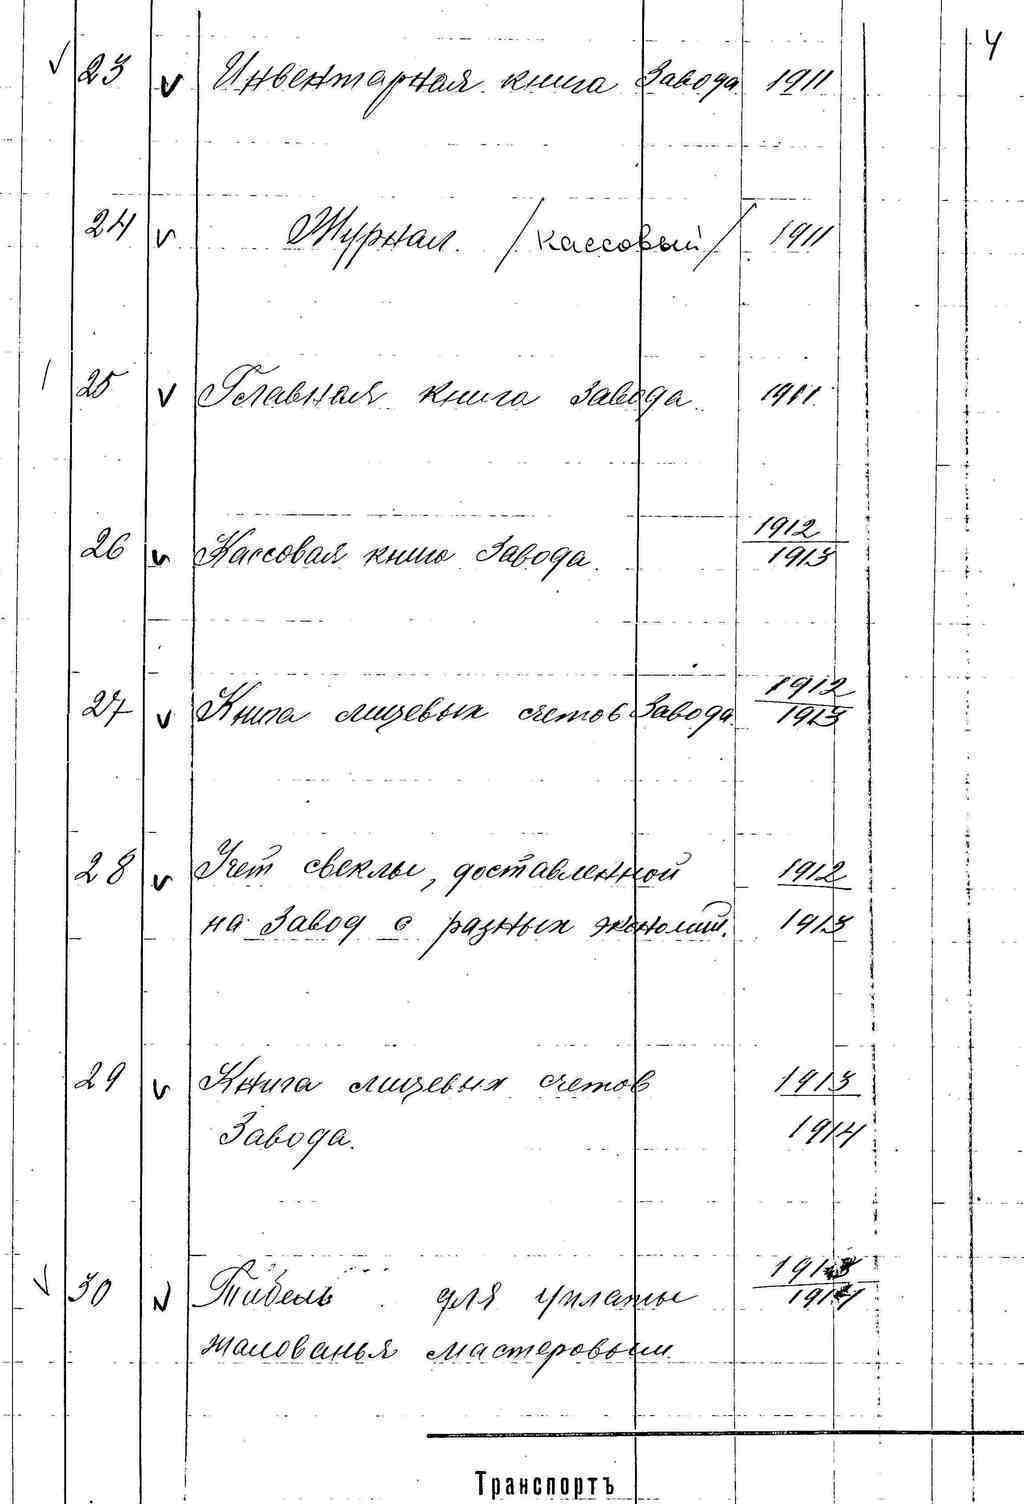 4
23 Инвентарная книга Завода 1911
24 Журнал. /кассовый/ 1911
25 Главная книга завода. 1911.
26 Кассовая книга Завода. 1912
1913
27 Книга лицевых счетов Завода. 1912
1913
28 Учет свеклы, доставленной 1912
на Завод с разных экономий. 1913
29 Книга лицевых счетов 1913
Завода. 1914
30 Табель для уплаты 1913
жалованья мастеровым. 1914
Транспортъ